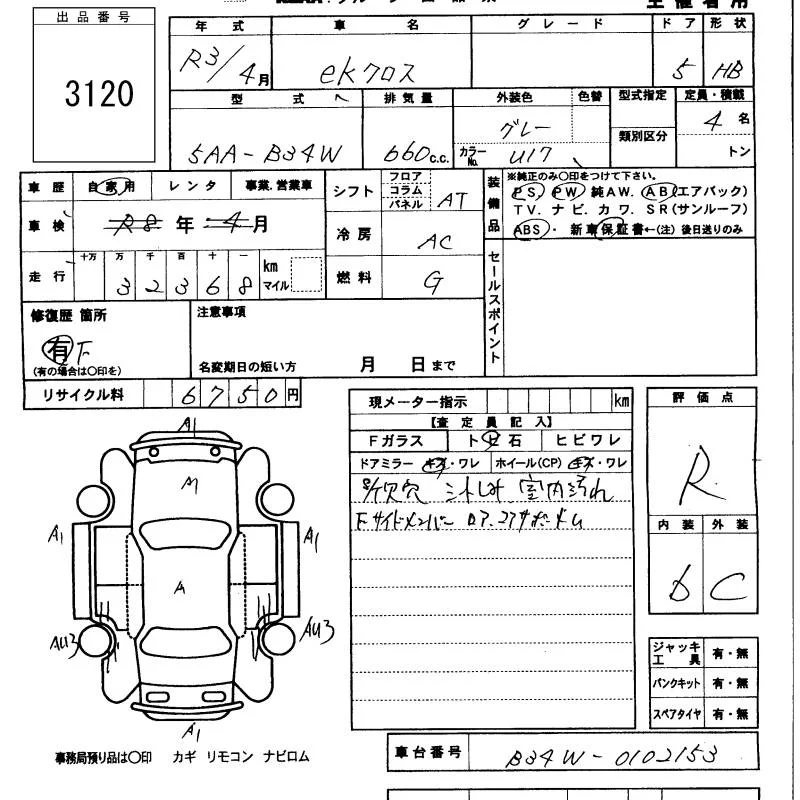 出品番号
3120
年式 車名 グレード ドア 形状
R3/4月 eKクロス 5 HB
型式 排気量 外装色 色替 型式指定 定員・積載
5AA-B34W 660c.c. グレー 4名
カラーNo. U17 類別区分 トン
車歴 自家用 レンタ 事業.営業車
車検 R8年 4月
走行 十万 万 千 百 十 一 km マイル
32368
シフト フロア コラム パネル AT
冷房 AC
燃料 G
装備品
※純正のみ〇印をつけて下さい。
PS. PW 純AW. AB(エアバック)
TV. ナビ. カワ. SR(サンルーフ)
ABS・新車保証書←(注)後日送りのみ
セールスポイント
修復歴 箇所
有 F
(有の場合は〇印を)
注意事項
名変期日の短い方 月 日まで
リサイクル料 6750円
現メーター指示 km
【査定員記入】
Fガラス トビ石 ヒビワレ
ドアミラー キズ・ワレ ホイール(CP) キズ・ワレ
シートしみ 室内汚れ
Fサイドメンバー
評価点
R
内装 外装
D C
ジャッキ工具 有・無
パンクキット 有・無
スペアタイヤ 有・無
A1
A
A1 A1
A
AU3 AU3
A1
事務局預り品は〇印 カギ リモコン ナビロム
車台番号 B34W-0102153